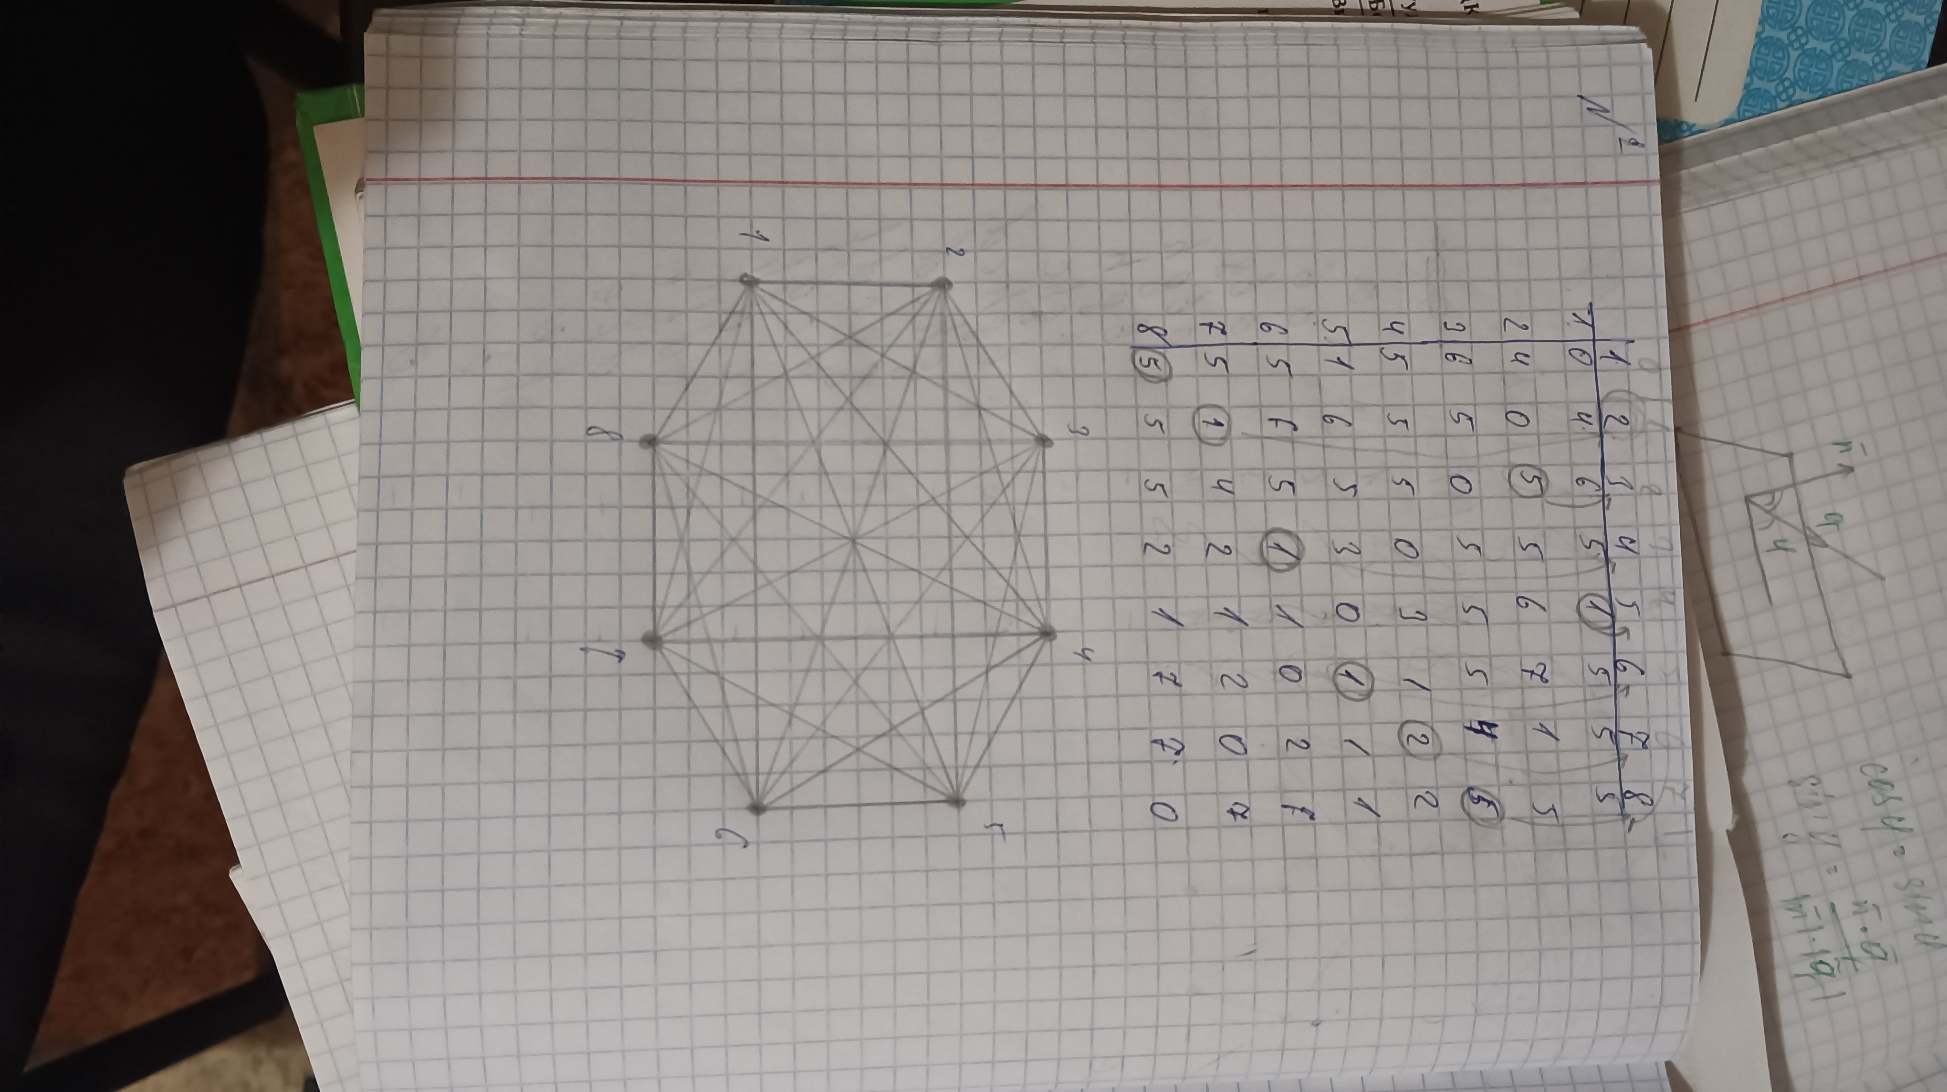 №2
1 2 3 4 5 6 7 8
1 0 4 6 5 1 5 5 5
2 4 0 5 5 6 7 1 5
3 6 5 0 5 5 5 4 5
4 5 5 5 0 3 1 2 2
5 1 6 5 3 0 1 1 1
6 5 7 5 1 1 0 2 7
7 5 1 4 2 1 2 0 7
8 5 5 5 2 1 7 7 0
3 4
2 5
1 6
8 7